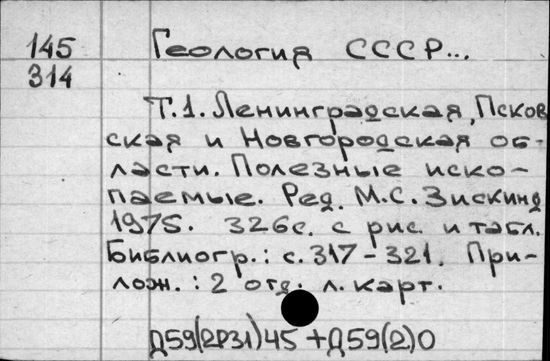 145
314
Геология СССР...
Т.1. Ленинградская, Псков
ская и Новгородская об-
ласти. Полезные иско-
паемые. Ред. М.С. Зискинд
1975. 326с. с рис. и табл.
Библиогр.: с. 317-321. При-
лож.: 2 отд. л. карт.
Д59(2Р31)45 +Д59(2)0